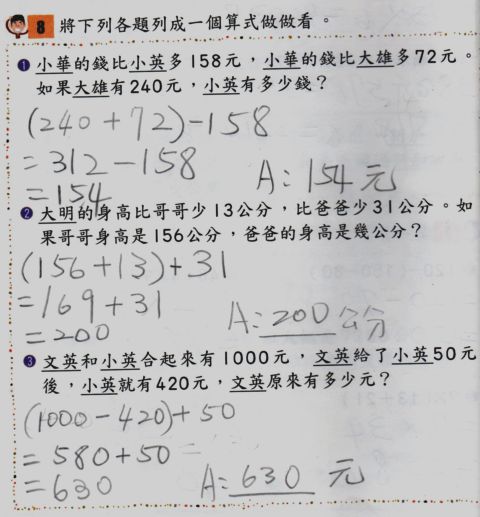 8 將下列各題列成一個算式做做看。
❶ 小華的錢比小英多158元，小華的錢比大雄多72元。
如果大雄有240元，小英有多少錢？
(240+72)-158
=312-158
=154 A:154元
❷ 大明的身高比哥哥少13公分，比爸爸少31公分。如
果哥哥身高是156公分，爸爸的身高是幾公分？
(156+13)+31
=169+31
=200 A:200公分
❸ 文英和小英合起來有1000元，文英給了小英50元
後，小英就有420元，文英原來有多少元？
(1000-420)+50
=580+50
=630 A:630元